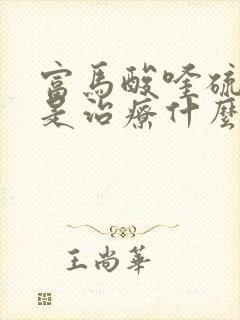 富馬酸喹硫
是治療什麼
王尚華